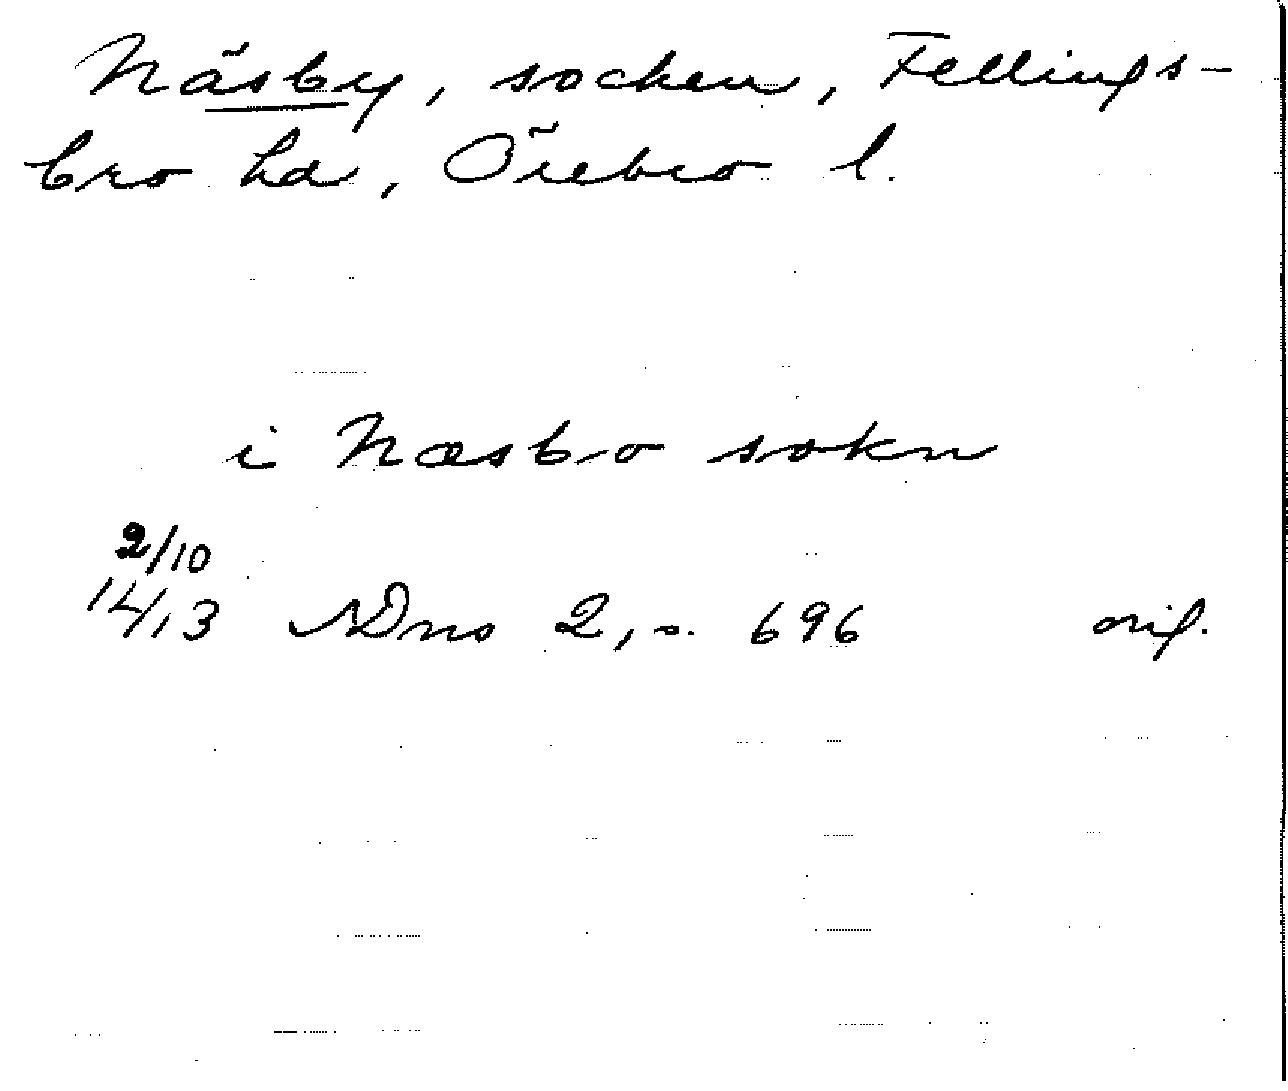 Näsby, socken, Fellings-
bro hd, Örebro l.
i Næsbo sokn
2/10
14/13 SDns 2, s. 696 orig.